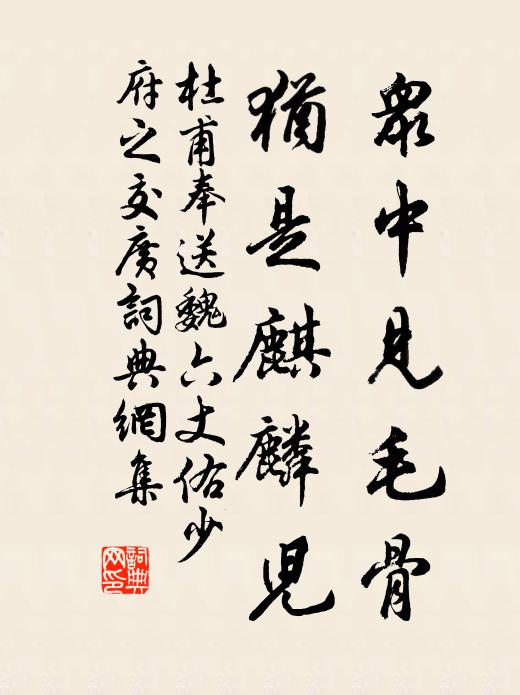 眾中見毛骨
猶是麒麟児
杜甫奉送魏六丈佑少
府之交廣詞典網集
詞典
网印